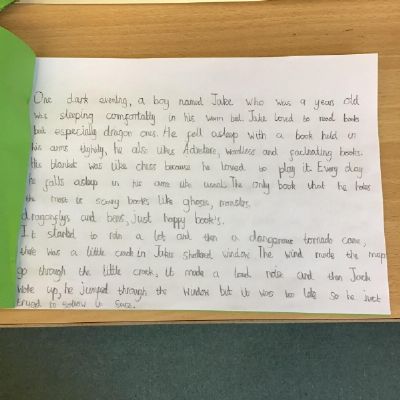 One dark evening, a boy named Jake who was 9 years old
was sleeping comfortably in his warm bed. Jake loved to read books
but especially dragon ones. He fell asleep with a book held in
his arms tightly, he als likes Adveture, woodless and facinating books.
His blanket was like chess because he loved to play it. Every day
he falls asleep in his arms like usual. The only book that he hates
the most is scary books like ghosis, monsters,
dragonflys and bens, just happy book's.
It started to rain a lot and then a dangerous tornado came,
there was a little crack in Jakes shattered window. The wind made the map
go through the little crack, it made a loud noise and then Jack
woke up, he jumped through the window but it was too late so he just
to in